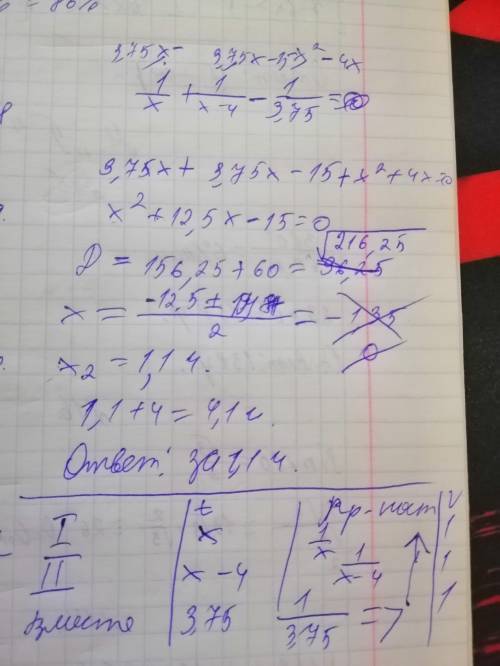 = 80%
3,75x 3,75x-15 x² - 4x
1/x + 1/(x-4) - 1/3,75 = 0
3,75x + 3,75x - 15 + x² + 4x = 0
x² + 12,5x - 15 = 0
D = 156,25 + 60 = √216,25
x = (-12,5 ±)/2 = - 13,5
0
x₂ = 1,1 ч.
1,1 + 4 = 4,1 ч.
Ответ: за 1,1 ч.
t V
I x 1/x 1
II x - 4 1/(x-4) 1
Вместе 3,75 1/3,75 => 1